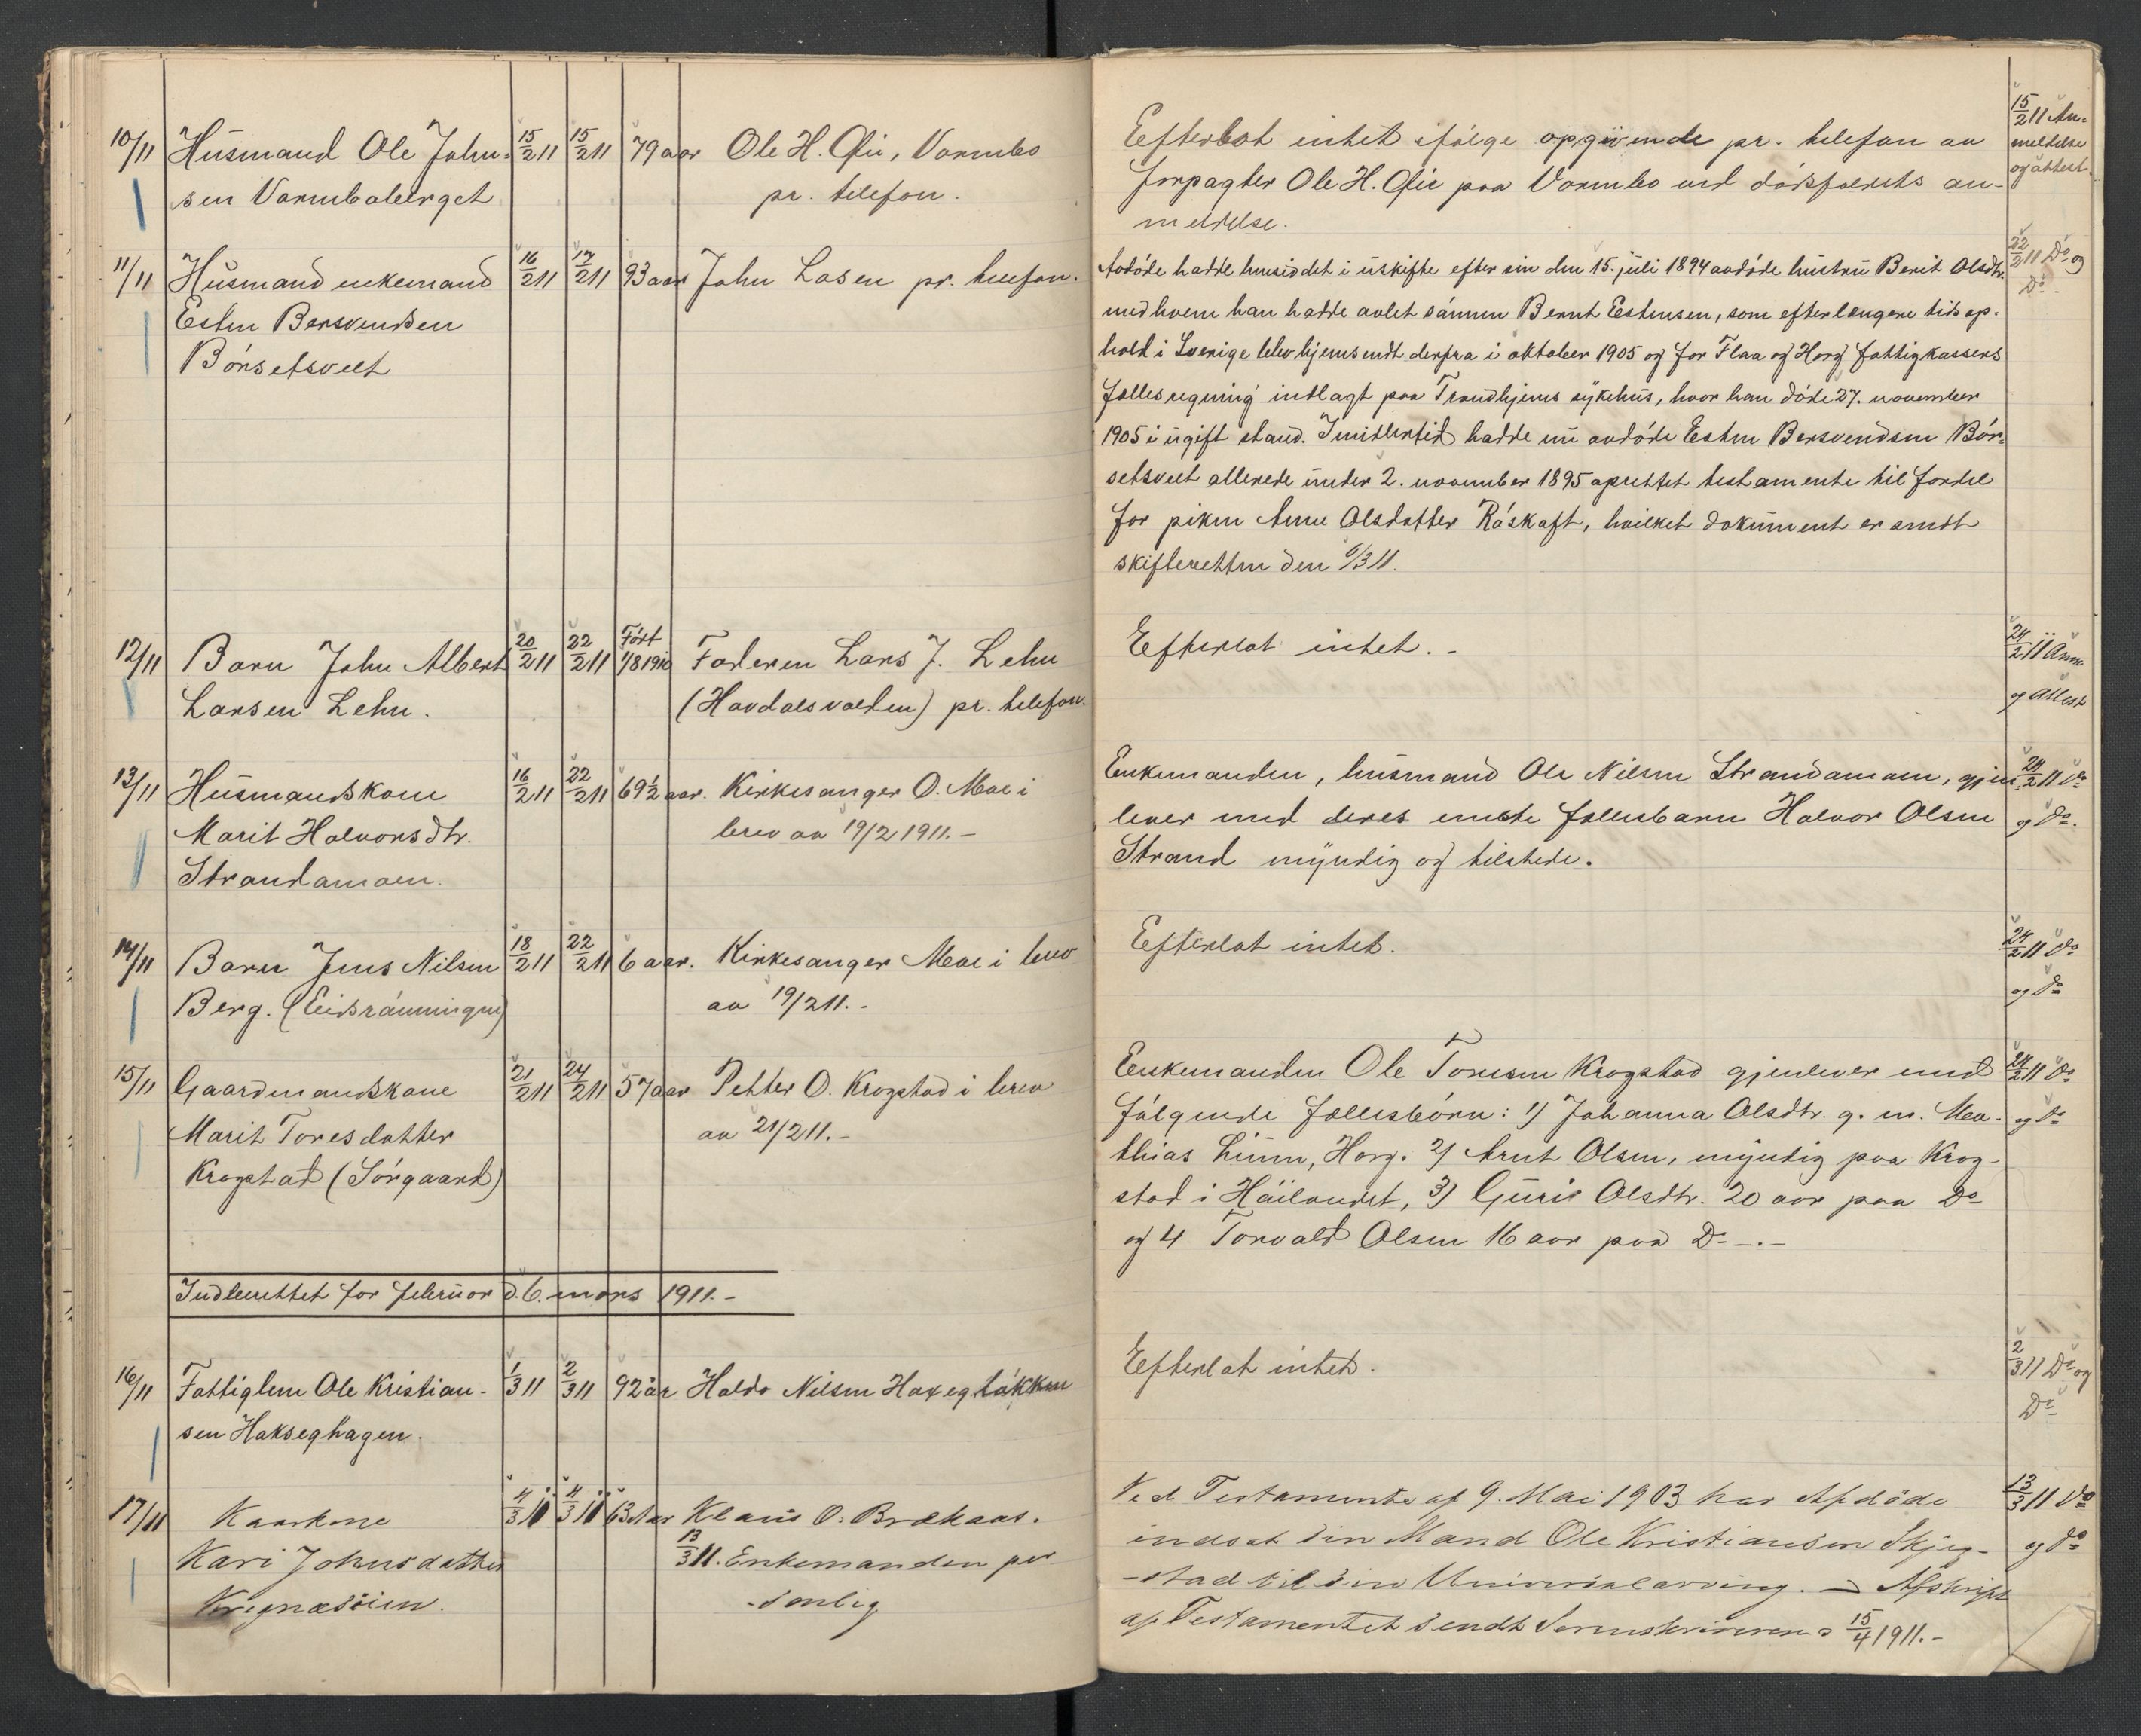 10/11 Husmand Ole John- 15/2 11 15/2 11 79 aar Ole H. Øie, Vormbo
sen Vormbobleerget pr. telefon.
Efterlot intet ifølge opgivende pr. telefon av
forpagter Ole H. Øie paa Vormbo ved dødsfaldets an-
meldelse.
15/2 11 An-
meldelse
og attest.
11/11 Husmand enkemand 16/2 11 17/2 11 93 aar John Losen pr. telefon.
Esten Bersvendsen
Børsetsveet
Avdøde hadde hensiddet i uskifte efter sin den 15. juli 1894 avdøde hustru Berit Olsdtr.
med hvem han hadde avlet sønnen Bernt Estensen, som efter længere tids op-
hold i Sverige blev hjemsendt derfra i oktober 1905 og for Flaa og Horg fattigkassers
fællesregning indlagt paa Trondhjems sykehus, hvor han døde 27. november
1905 i ugift stand. Imidlertid hadde nu avdøde Esten Bersvendsen Bør-
setsveet allerede under 2. november 1895 oprettet testamente til fordel
for piken Anne Olsdatter Røskaft, hvilket dokument er sendt
skifteretten den 6/3 11.
22/2 11 Do og
Do
12/11 Barn John Albert 20/2 11 22/2 11 Født 1/8 1910 Faderen Lars J. Lehn
Larsen Lehn. (Hovdalsvolden) pr. telefon.
Efterlot intet. -
24/2 11 Anm
og attest
13/11 Husmandskone 16/2 11 22/2 11 69½ aar. Kirkesanger O. Moe i
Marit Halvorsdtr. brev av 19/2 1911. -
Strandamoen.
Enkemanden, husmand Ole Nilsen Strandamoen, gjen-
lever med deres eneste fællesbarn Halvor Olsen
Strand myndig og tilstede.
24/2 11 do
og do.
14/11 Barn Jens Nilsen 18/2 11 22/2 11 6 aar. Kirkesanger Moe i brev
Berg. (Eidsrønningen) av 19/2 11. -
Efterlot intet.
24/2 11 do
og do
15/11 Gaardmandskone 21/2 11 24/2 11 57 aar Petter O. Krogstad i brev
Marit Toresdatter av 21/2 11. -
Krogstad (Sørgaard)
Enkemanden Ole Toresen Krogstad gjenlever med
følgende fællesbørn: 1) Johanna Olsdtr. g. m. Ma-
thias Linm, Horg. 2) Arnt Olsen, myndig paa Krog-
stad i Høilandet, 3) Guri Olsdtr. 20 aar paa Do
og 4 Torvald Olsen 16 aar paa Do -.-
24/2 11 do
og do
Indberettet for februar d. 6. mars 1911. -
16/11 Fattiglem Ole Kristian- 1/3 11 2/3 11 92 år Haldo Nilsen Haxegløkken
sen Hakseghagen.
Efterlat intet.
2/3 11 Do og
Do
17/11 Kaarkone 4/3 11 4/3 11 63 Aar Klaus O. Brækaas.
Kari Johnsdatter 13/3 11. Enkemanden per
Kregnesøien. -sonlig
Ved Testamente af 9. Mai 1903 har Afdøde
indsat sin Mand Ole Kristiansen Skjeg-
-stad til sin Universalarving. - Afskrift
af Testamentet sendt Sorenskriveren 15/4 1911. -
13/3 11 do
og do